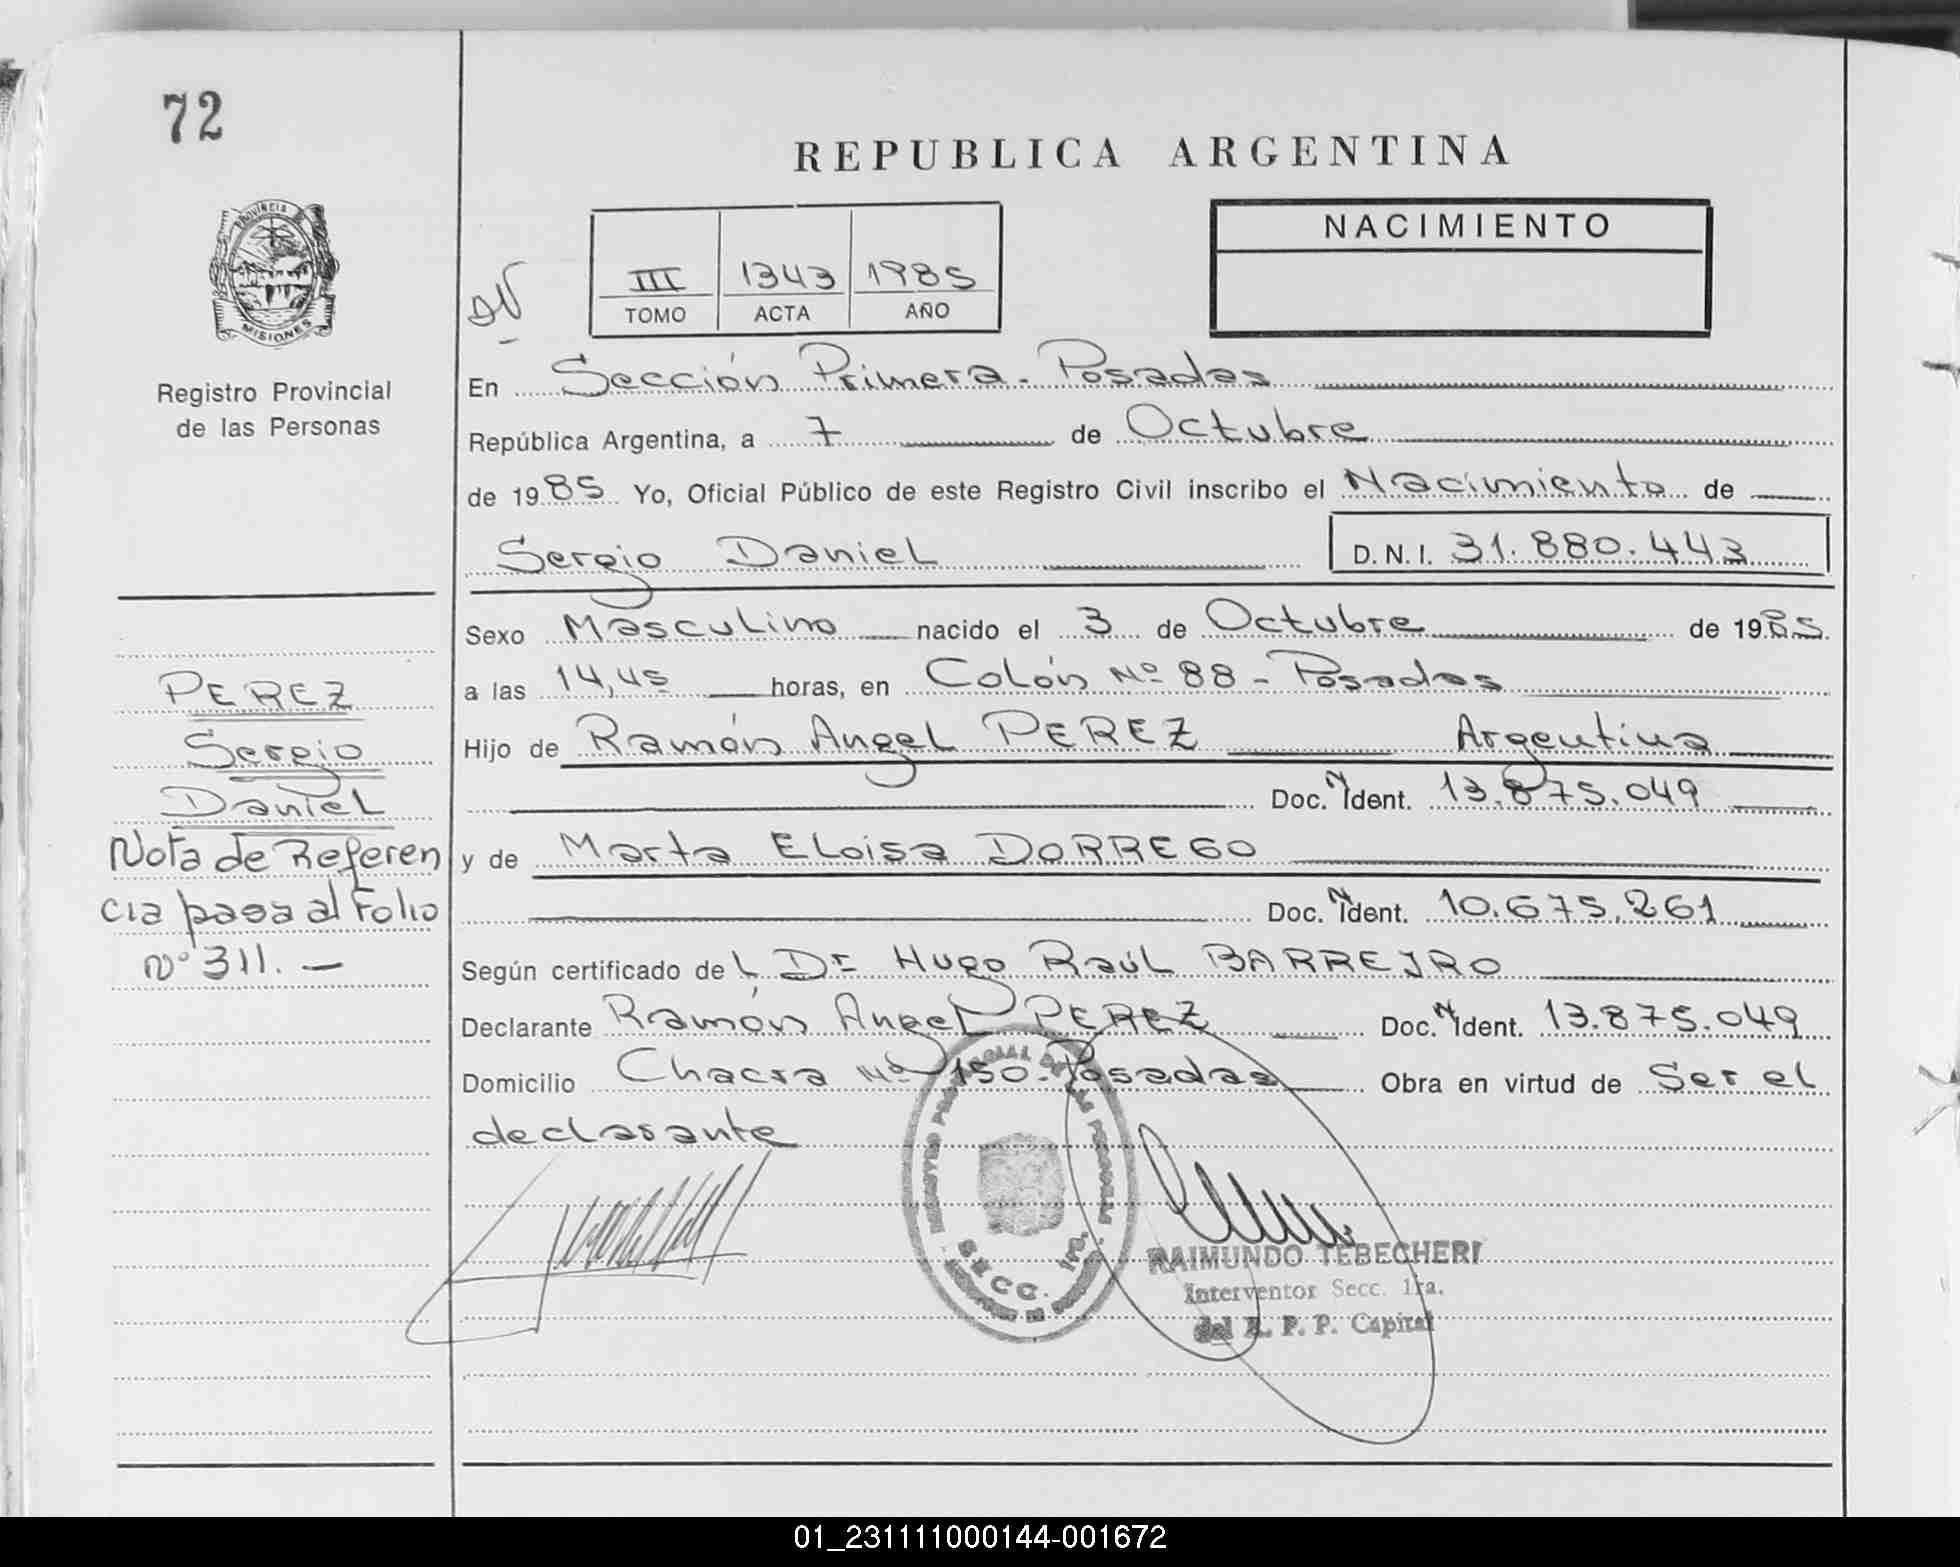 72
REPUBLICA ARGENTINA
NACIMIENTO
III 1343 1985
TOMO ACTA AÑO
PROVINCIA
MISIONES
Registro Provincial
de las Personas
En Sección Primera. Posadas
República Argentina, a 7 de Octubre
de 1985 Yo, Oficial Público de este Registro Civil inscribo el Nacimiento de
Sergio Daniel D.N.I. 31.880.443
Sexo Masculino nacido el 3 de Octubre de 1985.
a las 14,45 horas, en Colón Nº 88 - Posadas
Hijo de Ramón Angel PEREZ Argentina
Doc. N Ident. 13.875.049
y de Marta Eloisa DORREGO
Doc. N Ident. 10.675.261
Según certificado del Dr Hugo Raúl BARREIRO
Declarante Ramón Angel PEREZ Doc. N Ident. 13.875.049
Domicilio Chacra Nº 150. Posadas Obra en virtud de Ser el
declarante
PEREZ
Sergio
Daniel
Nota de Referen
cia pasa al Folio
Nº 311. —
SECC. 1RA.
RAIMUNDO TEBECHERI
Interventor Secc. 1ra.
del R. P. P. Capital
01_231111000144-001672